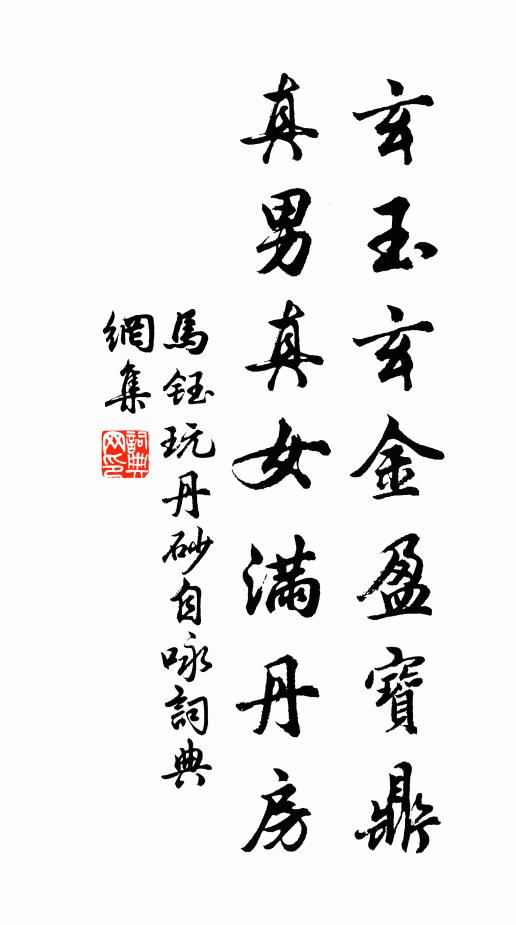 玄玉玄金盈寶鼎
真男真女滿丹房
馬鈺玩丹砂自咏詞典
網集
詞典
网印